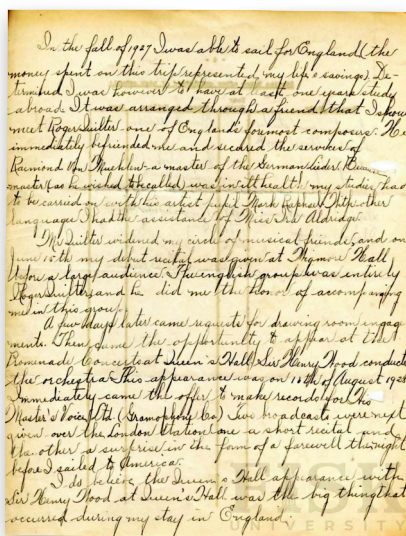 In the fall of 1927 I was able to sail for England (the
money spent on this trip represented my life's savings) De-
termined I was however to have at least one years study
abroad. It was arranged through a friend that I should
meet Roger Quilter - one of England's foremost composers. He
immediately befriended me and secured the services of
Raimond Von Muehlen - a master of the German Lieder.
master (as he wished to be called) was in ill health my studies had
to be carried on with his artist pupil Mark Raphael
language I had the assistance of Miss Ira Aldridge.
Mr Quilter widened my circle of musical friends, and on
June 15th my debut recital was given at Wigmore Hall
before a large audience. The english group was entirely
Roger Quilter and he did me the honor of accompanying
me in this group.
A few days later came requests for drawing room engage
ments. Then came the opportunity to appear at the
Promenade Concerts at Queen's Hall, Sir Henry Wood conducted
the orchestra. This appearance was on 16th of August 1928
Immediately came the offer to make records for The
Master's Voice Ltd. (Gramophone Co) Two broadcasts were next
given over the London Station (one a short recital and
the other a surprise in the form of a farewell the night
before I sailed to America.
I do believe the Queen's Hall apparance with
Sir Henry Wood at Queen's Hall was the big thing that
occurred during my stay in England.
FISK
UNIVERSITY